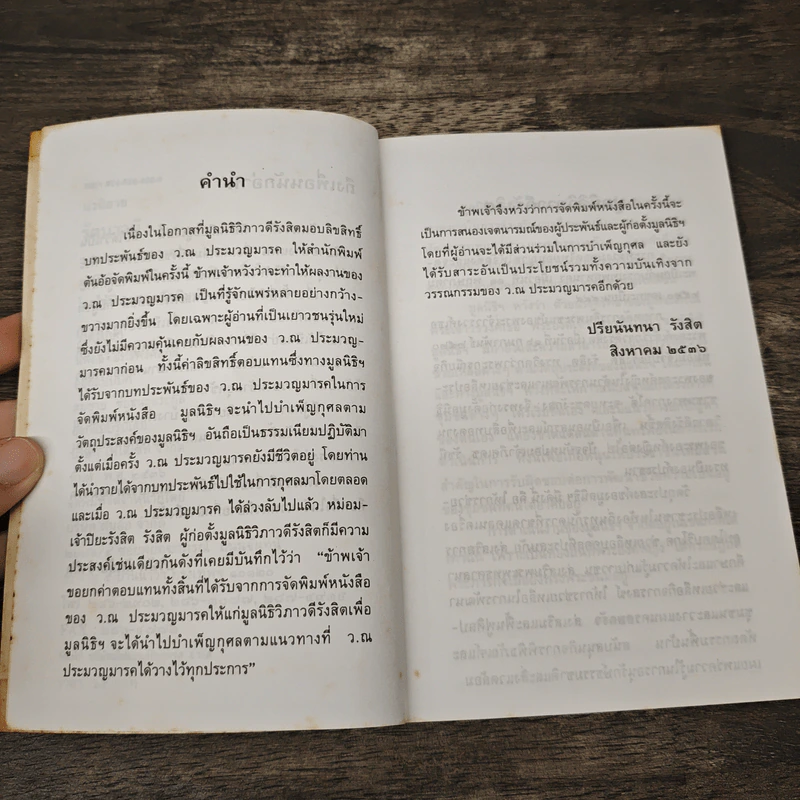 คำนำ
เนื่องในโอกาสที่มูลนิธิวิภาวดีรังสิตมอบลิขสิทธิ์
บทประพันธ์ของ ว.ณ ประมวญมารค ให้สำนักพิมพ์
ต้นอ้อจัดพิมพ์ในครั้งนี้ ข้าพเจ้าหวังว่าจะทำให้ผลงานของ
ว.ณ ประมวญมารค เป็นที่รู้จักแพร่หลายอย่างกว้าง-
ขวางมากยิ่งขึ้น โดยเฉพาะผู้อ่านที่เป็นเยาวชนรุ่นใหม่
ซึ่งยังไม่มีความคุ้นเคยกับผลงานของ ว.ณ ประมวญ-
มารคมาก่อน ทั้งนี้ค่าลิขสิทธิ์ตอบแทนซึ่งทางมูลนิธิฯ
ได้รับจากบทประพันธ์ของ ว.ณ ประมวญมารคในการ
จัดพิมพ์หนังสือ มูลนิธิฯ จะนำไปบำเพ็ญกุศลตาม
วัตถุประสงค์ของมูลนิธิฯ อันถือเป็นธรรมเนียมปฏิบัติมา
ตั้งแต่เมื่อครั้ง ว.ณ ประมวญมารคยังมีชีวิตอยู่ โดยท่าน
ได้นำรายได้จากบทประพันธ์ไปใช้ในการกุศลมาโดยตลอด
และเมื่อ ว.ณ ประมวญมารค ได้ล่วงลับไปแล้ว หม่อม-
เจ้าปิยะรังสิต รังสิต ผู้ก่อตั้งมูลนิธิวิภาวดีรังสิตก็มีความ
ประสงค์เช่นเดียวกันดังที่เคยมีบันทึกไว้ว่า “ข้าพเจ้า
ขอยกค่าตอบแทนทั้งสิ้นที่ได้รับจากการจัดพิมพ์หนังสือ
ของ ว.ณ ประมวญมารคให้แก่มูลนิธิวิภาวดีรังสิตเพื่อ
มูลนิธิฯ จะได้นำไปบำเพ็ญกุศลตามแนวทางที่ ว.ณ
ประมวญมารคได้วางไว้ทุกประการ”
ข้าพเจ้าจึงหวังว่าการจัดพิมพ์หนังสือในครั้งนี้จะ
เป็นการสนองเจตนารมณ์ของผู้ประพันธ์และผู้ก่อตั้งมูลนิธิฯ
โดยที่ผู้อ่านจะได้มีส่วนร่วมในการบำเพ็ญกุศล และยัง
ได้รับสาระอันเป็นประโยชน์รวมทั้งความบันเทิงจาก
วรรณกรรมของ ว.ณ ประมวญมารคอีกด้วย
ปรียนันทนา รังสิต
สิงหาคม ๒๕๓๖